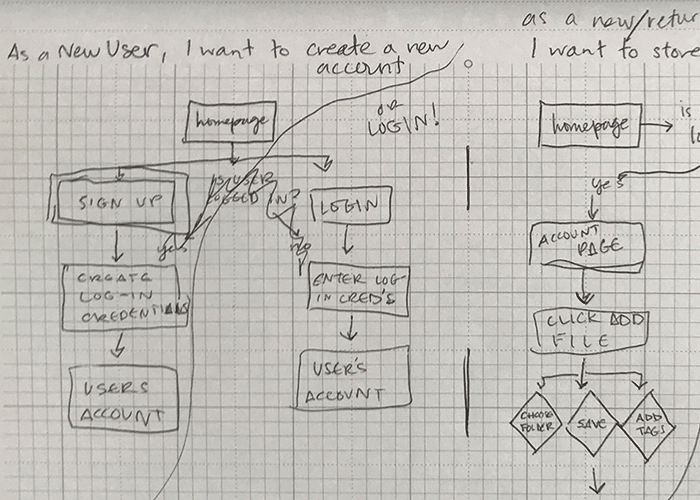 As a New User, I want to create a new
account
or
LOGIN!
homepage
SIGN UP
IS USER
LOGGED IN?
yes
no
LOGIN
CREATE
LOG-IN
CREDENTIALS
ENTER LOG-
IN CRED'S
USERS
ACCOUNT
USER'S
ACCOUNT
as a new/retur
I want to store
homepage
is
lo
yes
ACCOUNT
PAGE
CLICK ADD
FILE
CHOOSE
FOLDER
SAVE
ADD
TAGS